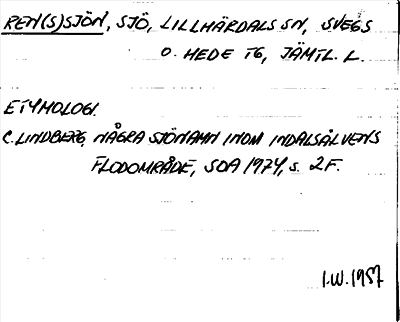 REN(S)SJÖN, SJÖ, LILLHÄRDALS SN, SVEGS
O. HEDE TG, JÄMTL. L.
ETYMOLOGI.
C. LINDBERG, NÅGRA SJÖNAMN INOM INDALSÄLVENS
FLODOMRÅDE, SOA 1974, s. 2 F.
I.W. 1987